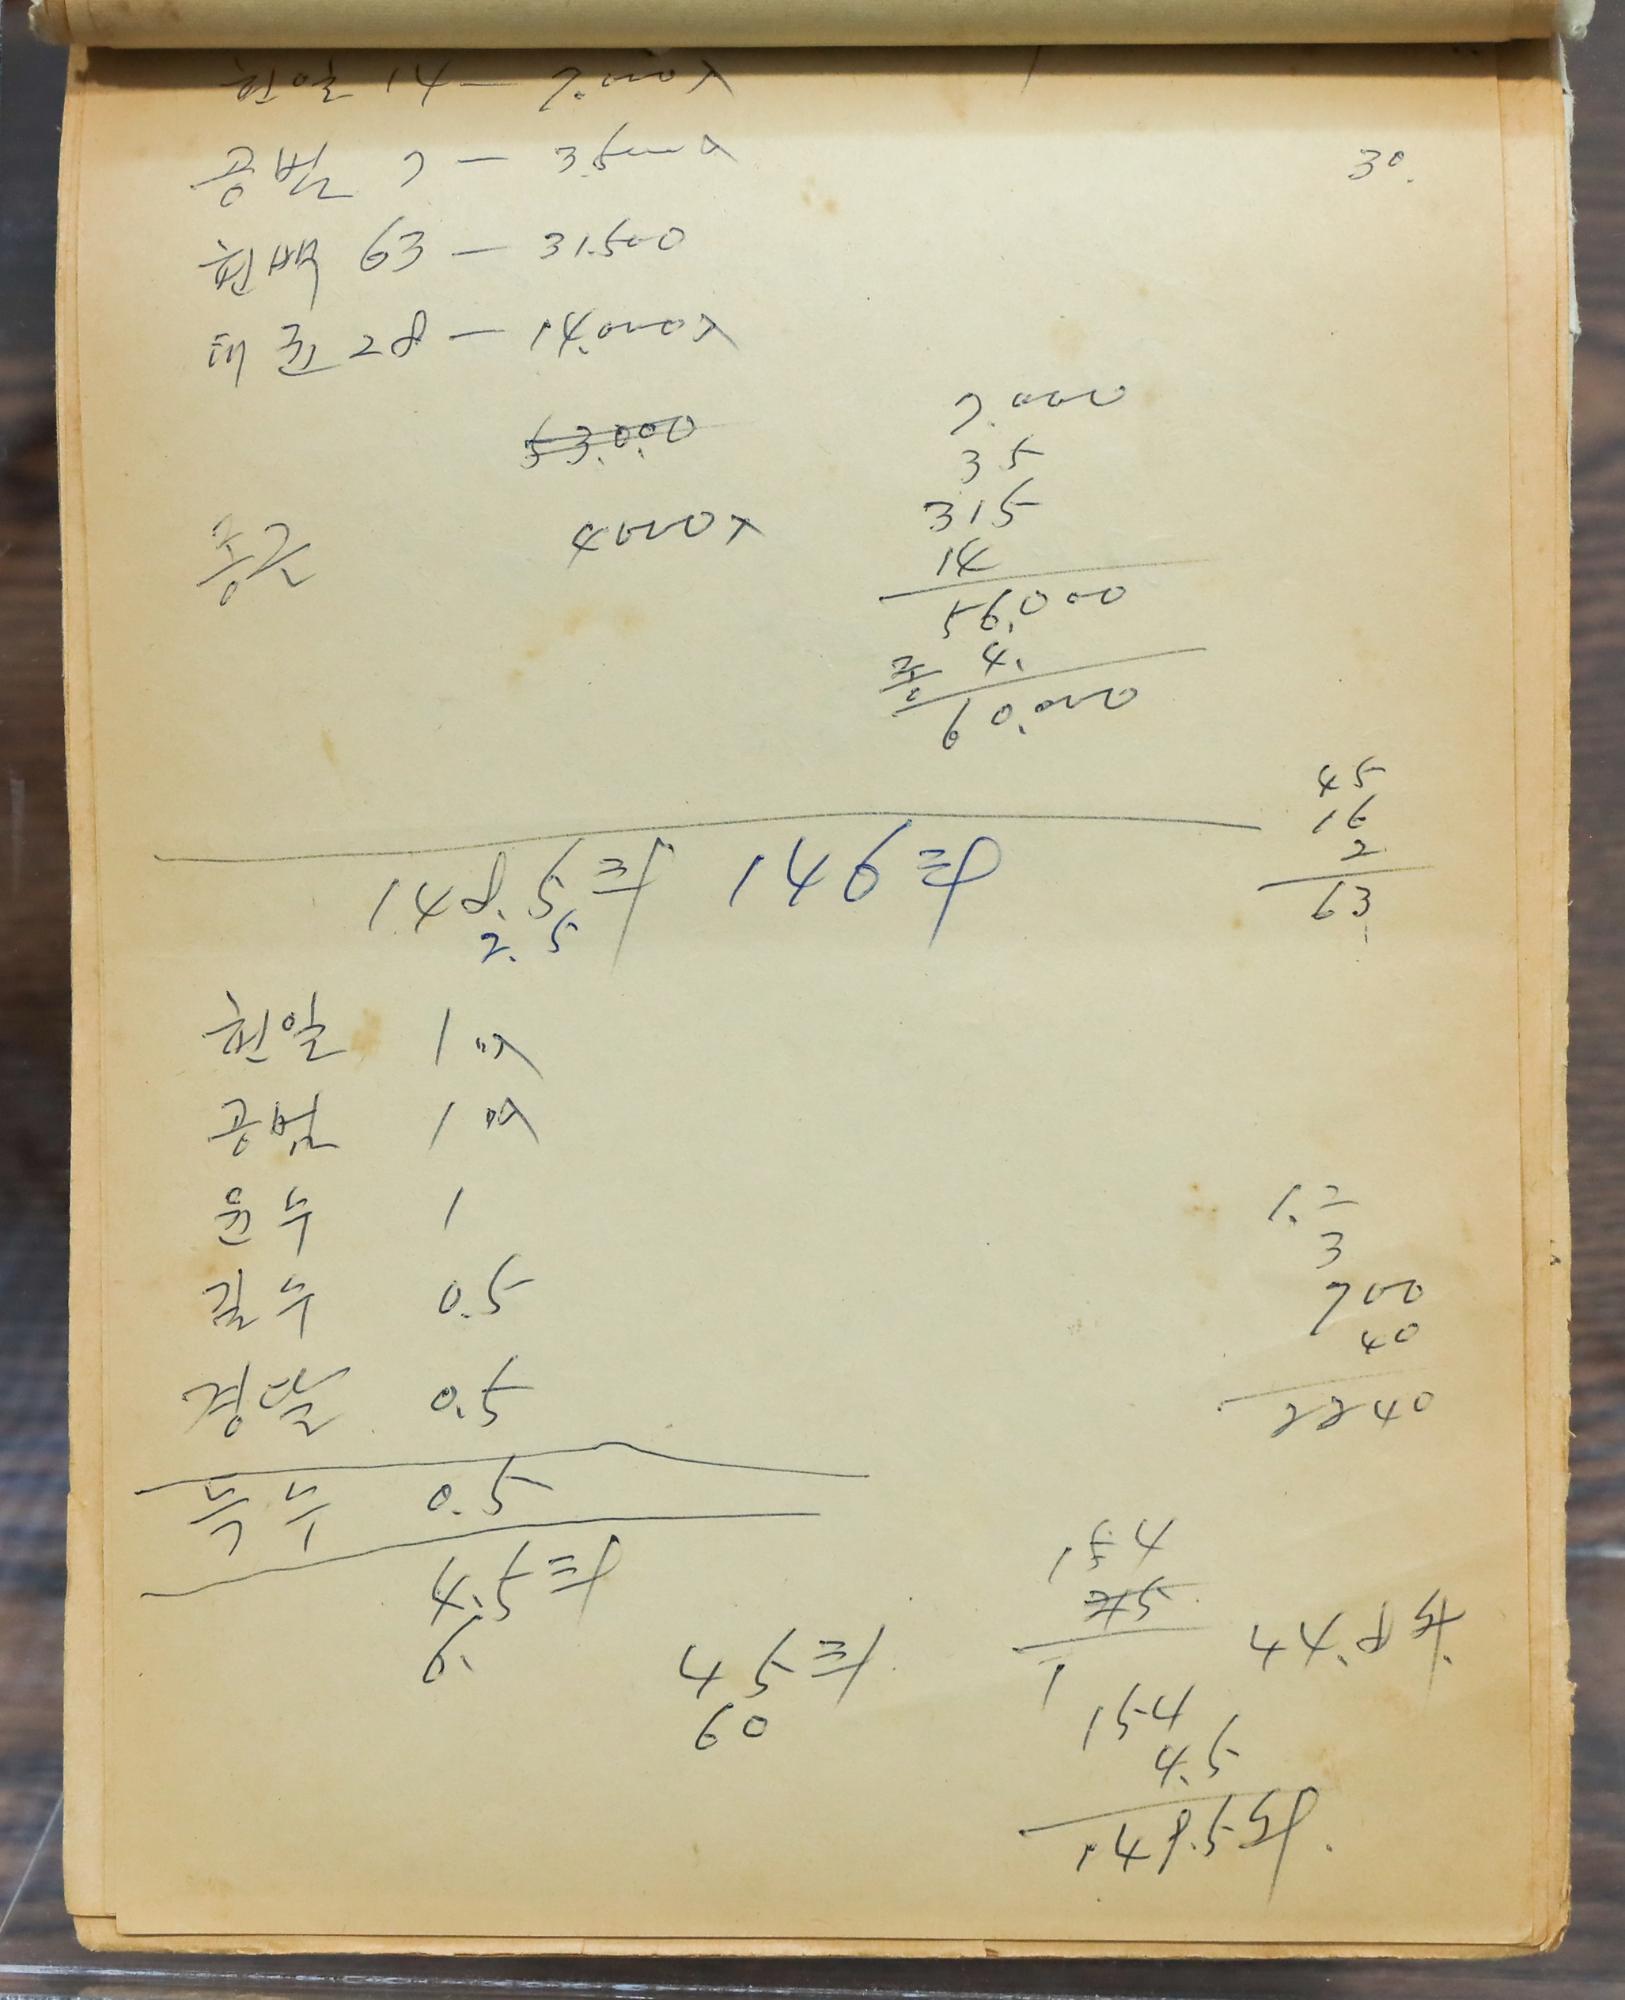 현일 14 — 7.000
공범 7 — 3.500
현백 63 — 31.500
태준 28 — 14.000
53.000
종근 4000
30.
7.000
35
315
14
56.000
4.
60.000
45
16
2
63
148.5 146
2.5
현일 1
공범 1
윤수 1
길수 0.5
경달 0.5
득수 0.5
4.5
6.
45
60
1.2
3
700
40
2240
154
45
1
44.8
154
4.5
148.5